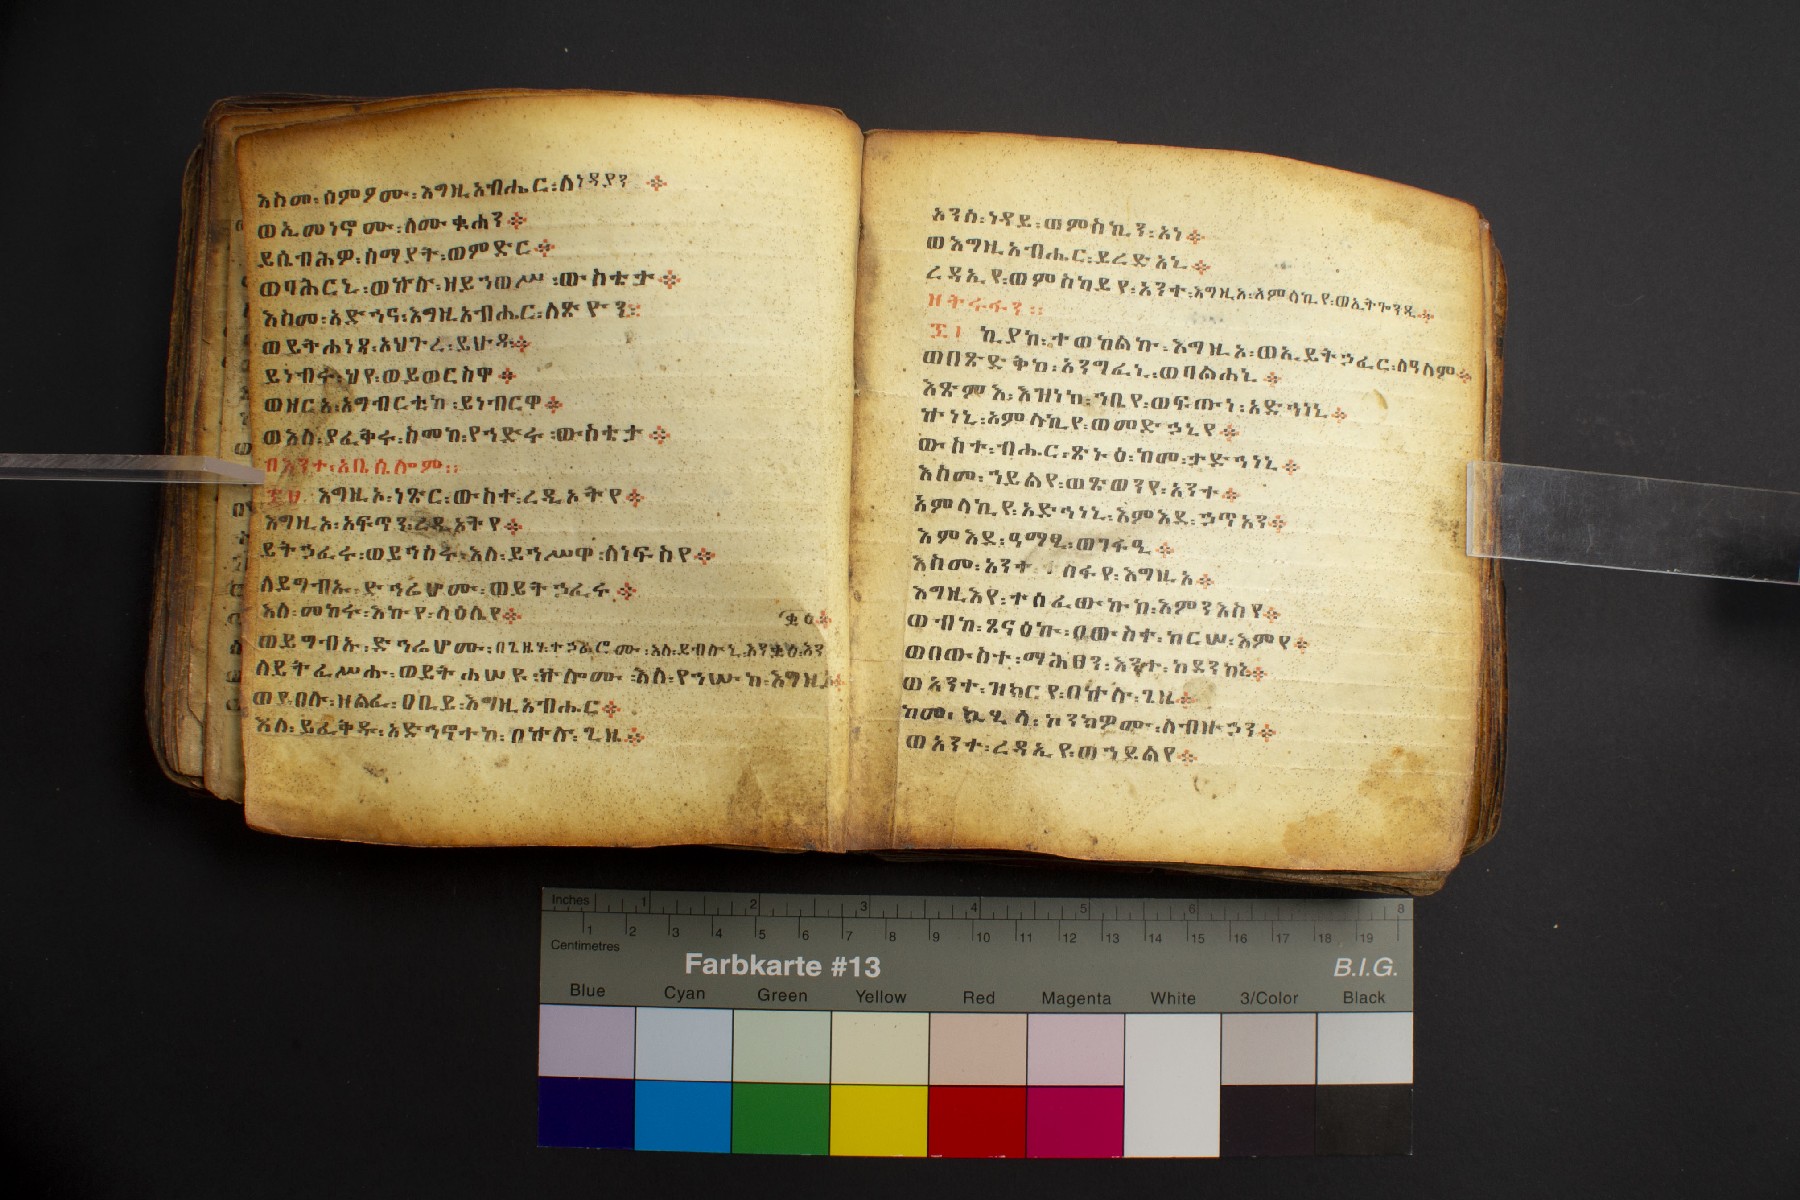 እስመ፡ሰምዖሙ፡እግዚአብሔር፡ለነዳያን ፨
ወኢመነኖሙ፡ለሙቁሐን፨
ይሴብሕዎ፡ሰማያት፡ወምድር፨
ወባሕርኒ፡ወኵሉ፡ዘይኀወሥ፡ውስቴታ፨
እስመ፡አድኀና፡እግዚአብሔር፡ለጽዮን፨
ወይትሐነጻ፡አህጉረ፡ይሁዳ፨
ይነብሩ፡ህየ፡ወይወርስዋ፨
ወዘርአ፡አግብርቲከ፡ይነብርዋ፨
ወእለ፡ያፈቅሩ፡ስመከ፡የኀድሩ፡ውስቴታ፨
በእንተ፡አቤሴሎም፡፡
፷፱ እግዚኦ፡ነጽር፡ውስተ፡ረዲኦትየ፨
እግዚኦ፡አፍጥን፡ረዲኦትየ፨
ይትኃፈሩ፡ወይኀስሩ፡እለ፡ይኀሥዋ፡ለነፍስየ፨
ለይግብኡ፡ድኅሬሆሙ፡ወይትኃፈሩ፨
እለ፡መከሩ፡እኩየ፡ላዕሌየ፨
ቋዕ፨
ወይግብኡ፡ድኅሬሆሙ፡በጊዜሃ፡ተኃፊሮሙ፡እለ፡ይብሉኒ፡እንቋዕ፡እን
ለይትፈሥሑ፡ወይትሐሠዩ፡ኵሎሙ፡እለ፡የኀሡከ፡እግዚኦ፨
ወይበሉ፡ዘልፈ፡ዐቢይ፡እግዚአብሔር፨
እለ፡ይፈቅዱ፡አድኅኖተከ፡በኵሉ፡ጊዜ፨
አንሰ፡ነዳይ፡ወምስኪን፡አነ፨
ወእግዚአብሔር፡ይረድአኒ፨
ረዳኢየ፡ወምስካይየ፡አንተ፡እግዚኦ፡አምላኪየ፡ወኢትጐንዲ፨
ዘትሩፋን፡፡
፸፤ ኪያከ፡ተወከልኩ፡እግዚኦ፡ወኢይትኃፈር፡ለዓለም፨
ወበጽድቅከ፡አንግፈኒ፡ወባልሐኒ፨
አጽምእ፡እዝነከ፡ኀቤየ፡ወፍጡነ፡አድኅነኒ፨
ኵነኒ፡አምላኪየ፡ወመድኃኒየ፨
ውስተ፡ብሔር፡ጽኑዕ፡ከመ፡ታድኅነኒ፨
እስመ፡ኀይልየ፡ወጽወንየ፡አንተ፨
አምላኪየ፡አድኅነኒ፡እምእደ፡ኃጥአን፨
እምእደ፡ዓማፂ፡ወገፋዒ፨
እስመ፡አንተ ፡ ሰፋየ፡እግዚኦ፨
እግዚእየ፡ተሰፈውኩከ፡እምንእስየ፨
ወብከ፡ጸናዕኩ፡በውስተ፡ከርሠ፡እምየ፨
ወበውስተ፡ማሕፀን፡አንተ፡ከደንከኒ፨
ወአንተ፡ዝክርየ፡በኵሉ፡ጊዜ፨
ከመ፡ኪሂላ፡ኮንክዎሙ፡ለብዙኃን፨
ወአንተ፡ረዳኢየ፡ወኀይልየ፨
Inches 1 2 3 4 5 6 8
1 2 3 4 5 6 7 8 9 10 11 12 13 14 15 16 17 18 19
Centimetres
Farbkarte #13 B.I.G.
Blue Cyan Green Yellow Red Magenta White 3/Color Black